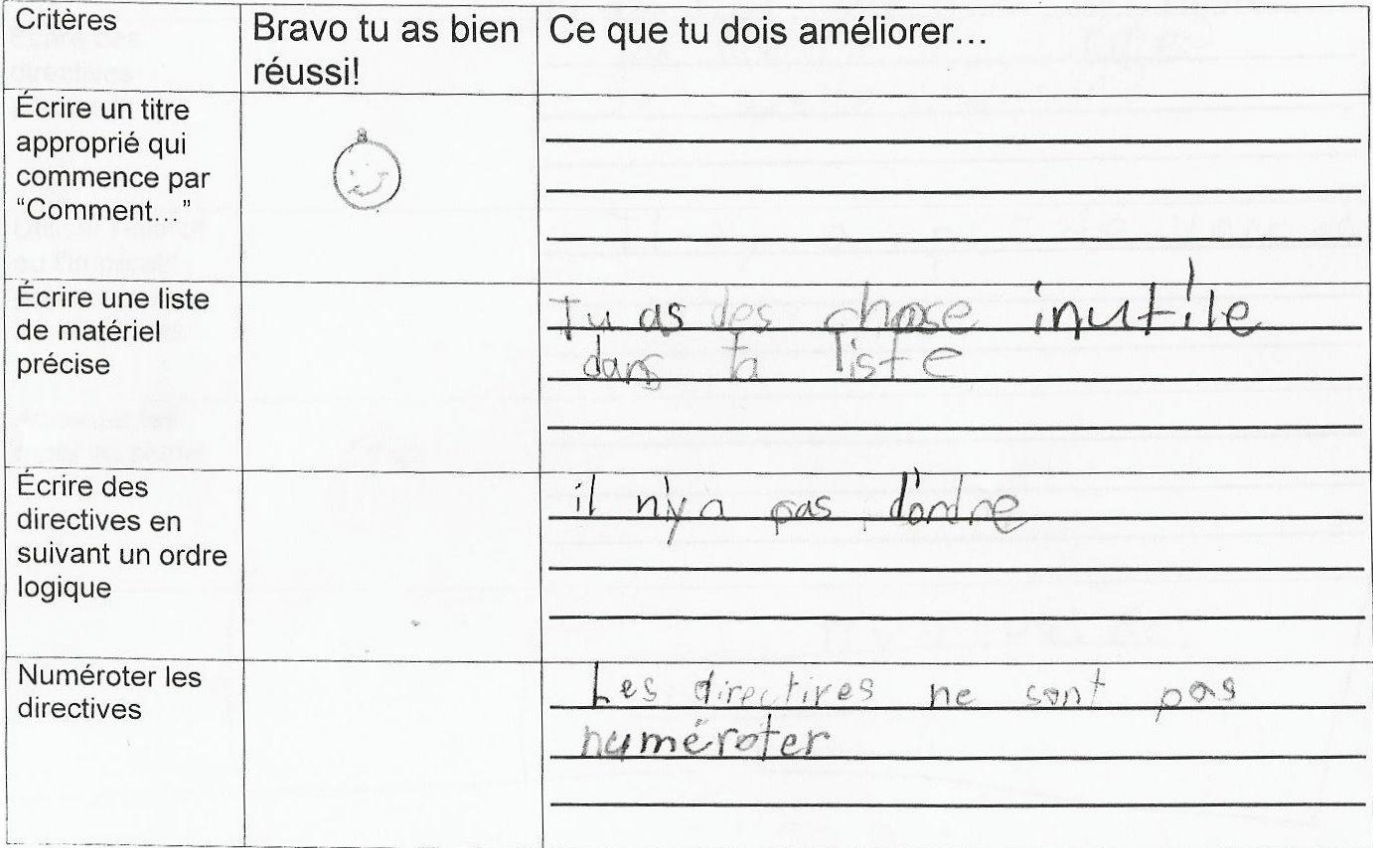 Critères
Bravo tu as bien
réussi!
Ce que tu dois améliorer...
Écrire un titre
approprié qui
commence par
“Comment...”
Écrire une liste
de matériel
précise
Tu as des chose inutile
dans ta liste
Écrire des
directives en
suivant un ordre
logique
il n'y a pas d'ordre
Numéroter les
directives
Les directives ne sont pas
numéroter